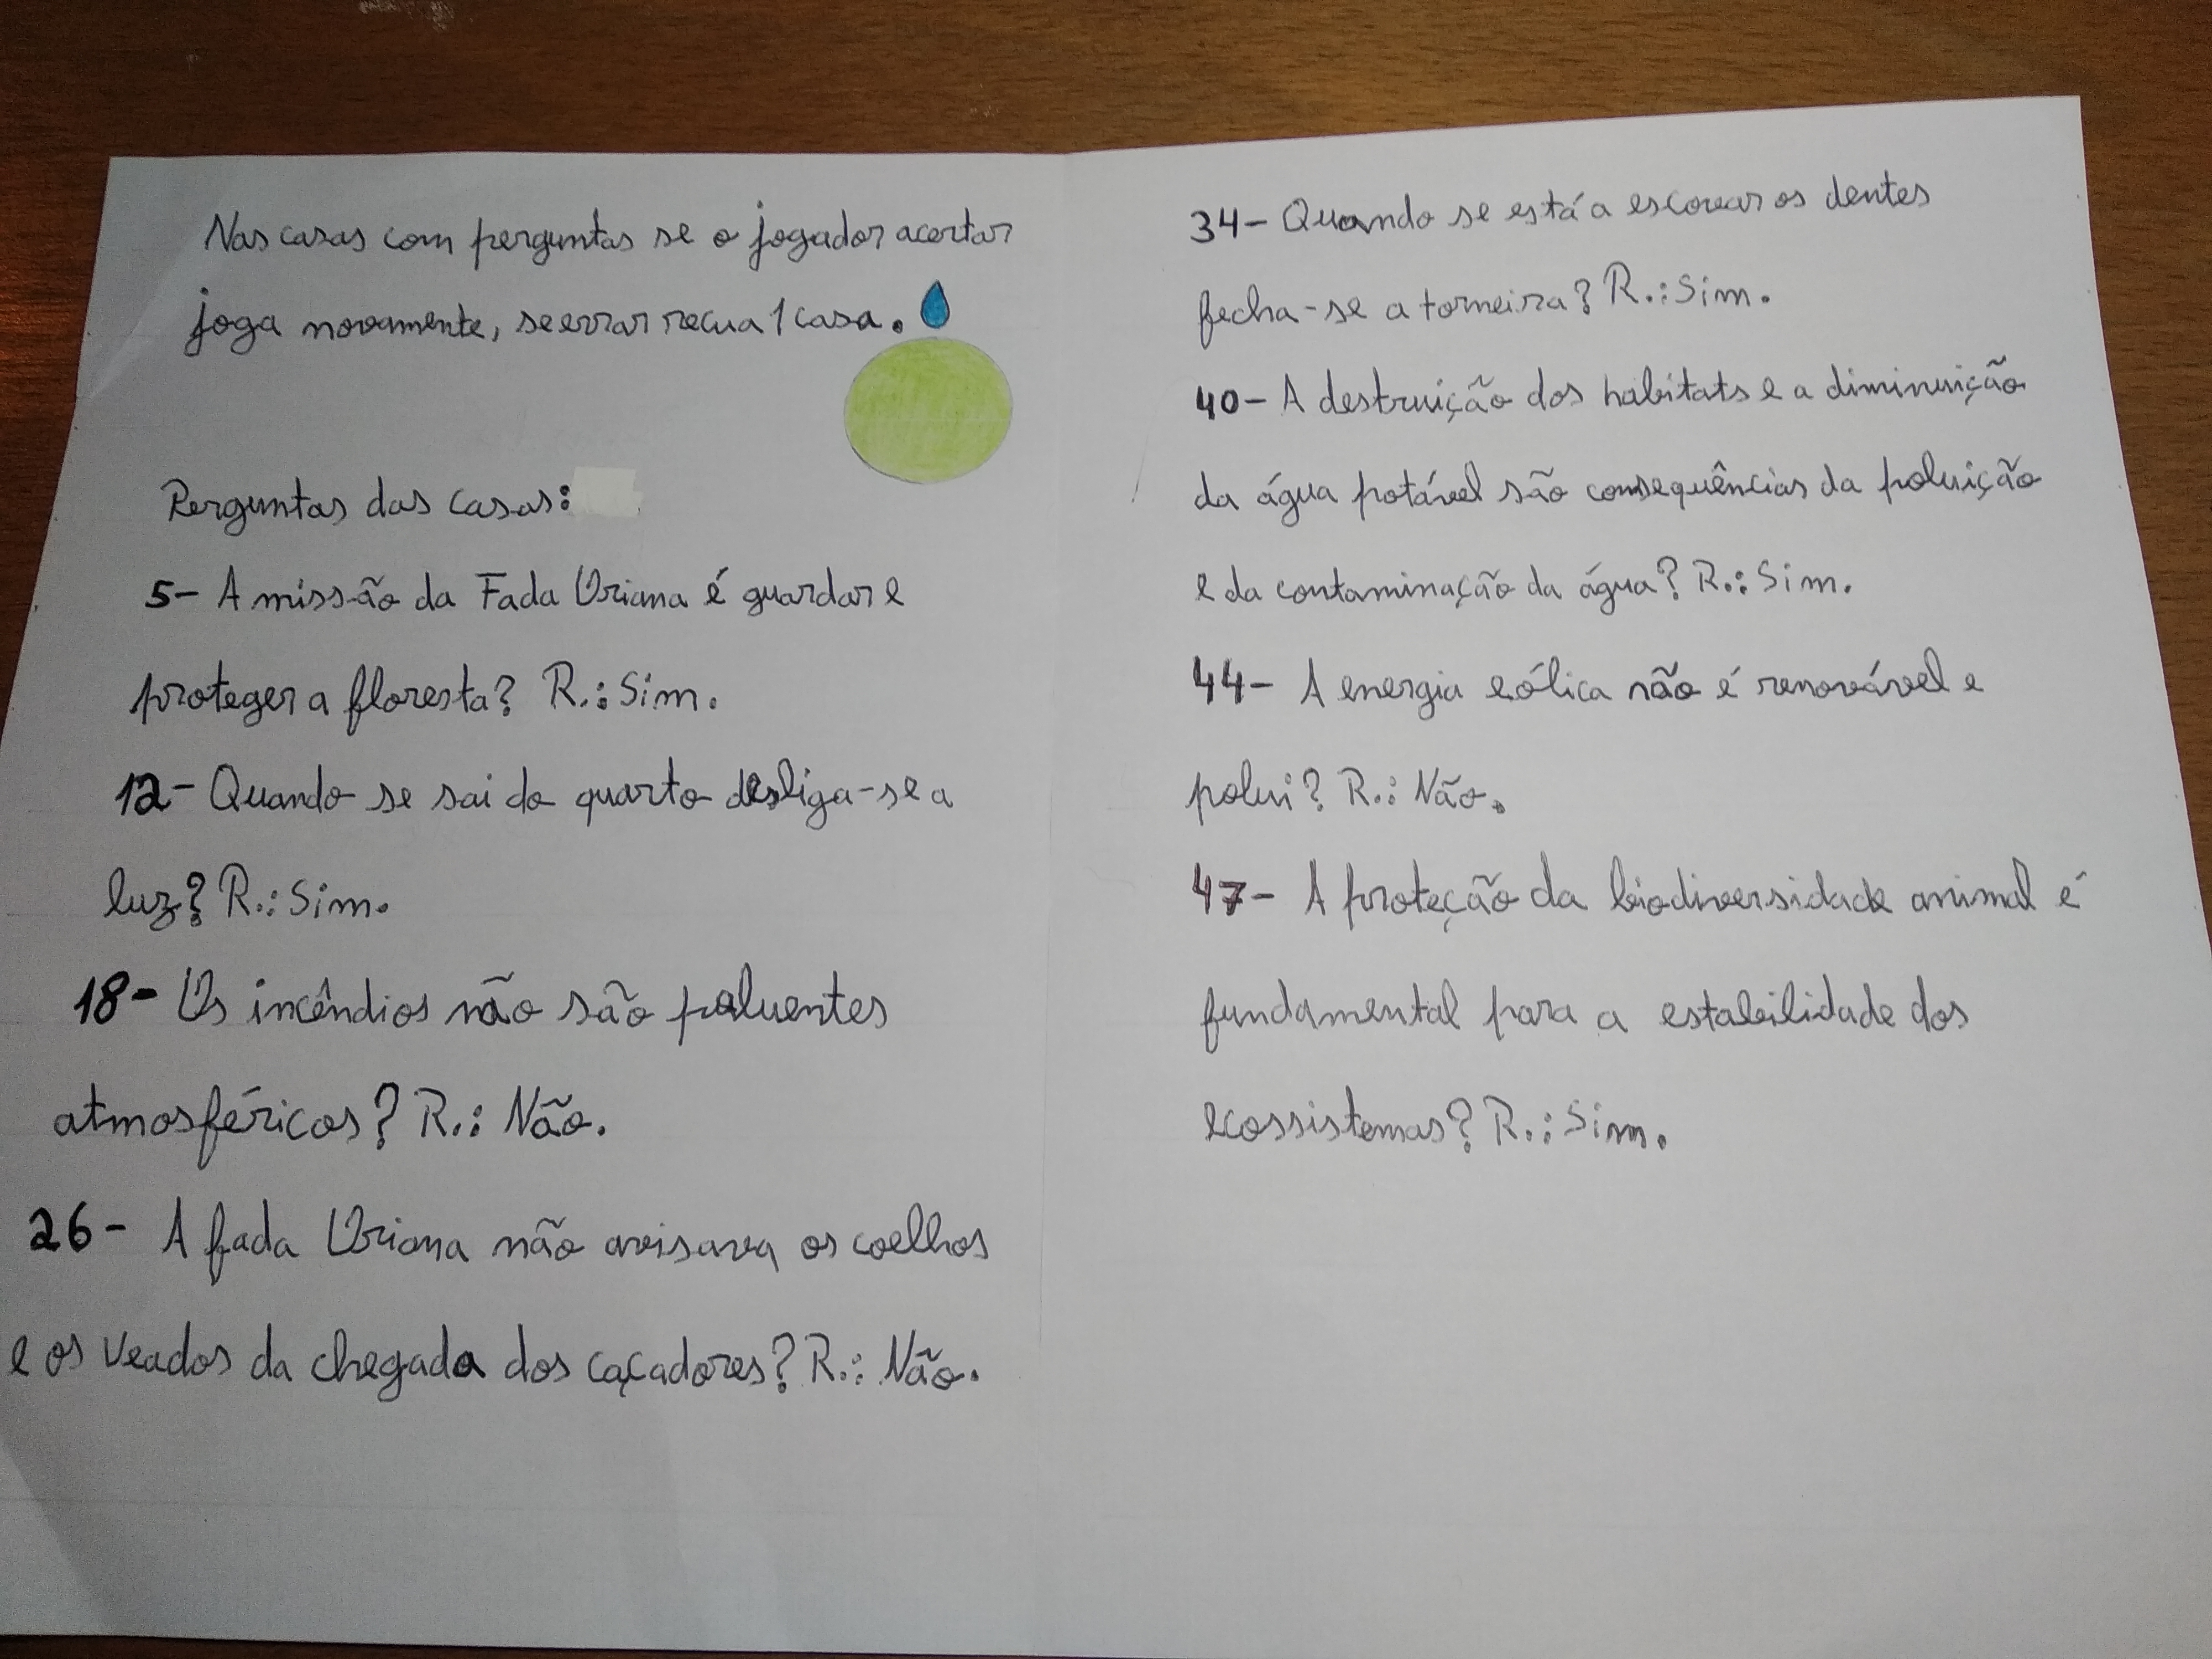 Nas casas com perguntas se o jogador acertar
joga novamente, se errar recua 1 casa.
Perguntas das casas:
5- A missão da Fada Oriana é guardar e
proteger a floresta? R.: Sim.
12- Quando se sai do quarto desliga-se a
luz? R.: Sim.
18- Os incêndios não são poluentes
atmosféricos? R.: Não.
26- A fada Oriana não avisava os coelhos
e os veados da chegada dos caçadores? R.: Não.
34- Quando se está a escovar os dentes
fecha-se a torneira? R.: Sim.
40- A destruição dos habitats e a diminuição
da água potável são consequências da poluição
e da contaminação da água? R.: Sim.
44- A energia eólica não é renovável e
polui? R.: Não.
47- A proteção da biodiversidade animal é
fundamental para a estabilidade dos
ecossistemas? R.: Sim.